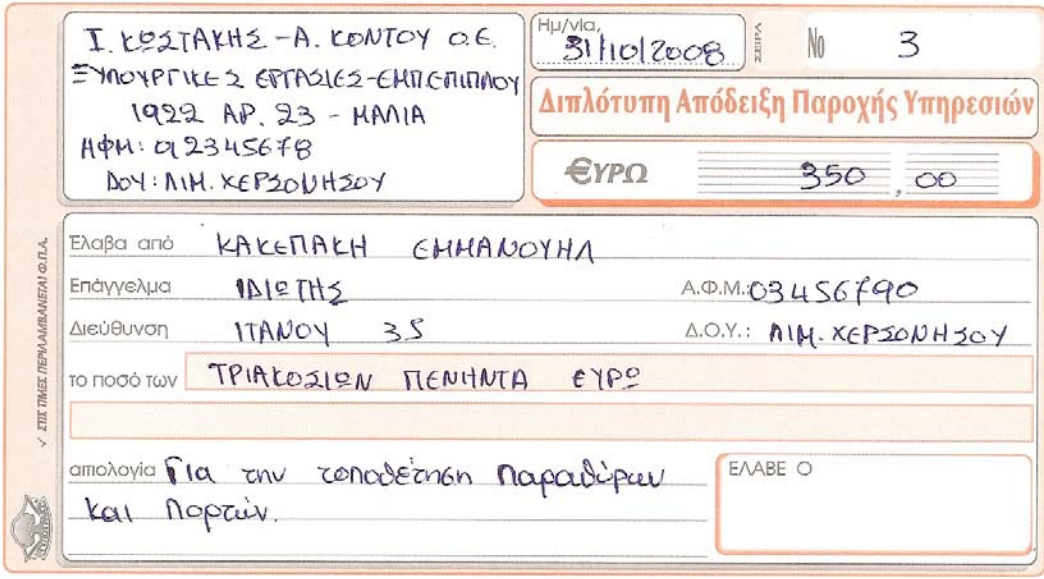 Ι. ΚΩΣΤΑΚΗΣ - Α. ΚΟΝΤΟΥ Ο.Ε.
ΞΥΛΟΥΡΓΙΚΕΣ ΕΡΓΑΣΙΕΣ - ΕΜΠ. ΕΠΙΠΛΟΥ
1922 ΑΡ. 23 - ΜΑΛΙΑ
ΑΦΜ: 012345678
ΔΟΥ: ΛΙΜ. ΧΕΡΣΟΝΗΣΟΥ
Ημ/νία, 31/10/2008
ΣΕΙΡΑ
No 3
Διπλότυπη Απόδειξη Παροχής Υπηρεσιών
€ΥΡΩ 350,00
Έλαβα από ΚΑΚΕΠΑΚΗ ΕΜΜΑΝΟΥΗΛ
Επάγγελμα ΙΔΙΩΤΗΣ Α.Φ.Μ.: 03456790
Διεύθυνση ΙΤΑΝΟΥ 35 Δ.Ο.Υ.: ΛΙΜ. ΧΕΡΣΟΝΗΣΟΥ
το ποσό των ΤΡΙΑΚΟΣΙΩΝ ΠΕΝΗΝΤΑ ΕΥΡΩ
αιτιολογία Για την τοποθέτηση παραθύρων
και πορτών.
ΕΛΑΒΕ Ο
✓ ΣΤΙΣ ΤΙΜΕΣ ΠΕΡΙΛΑΜΒΑΝΕΤΑΙ Φ.Π.Α.